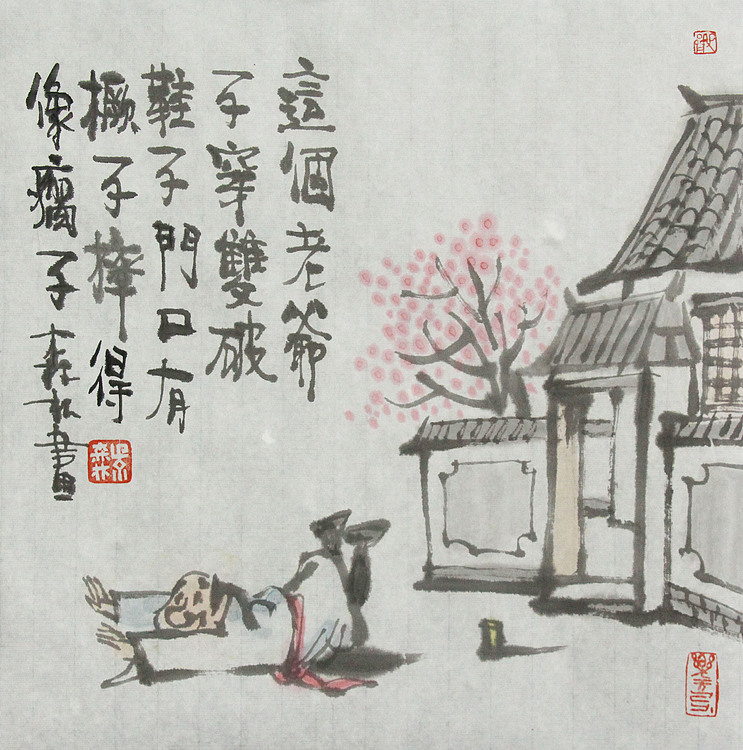 這個老爺
子穿雙破
鞋子門口有
橛子摔得
像瘸子森林畫